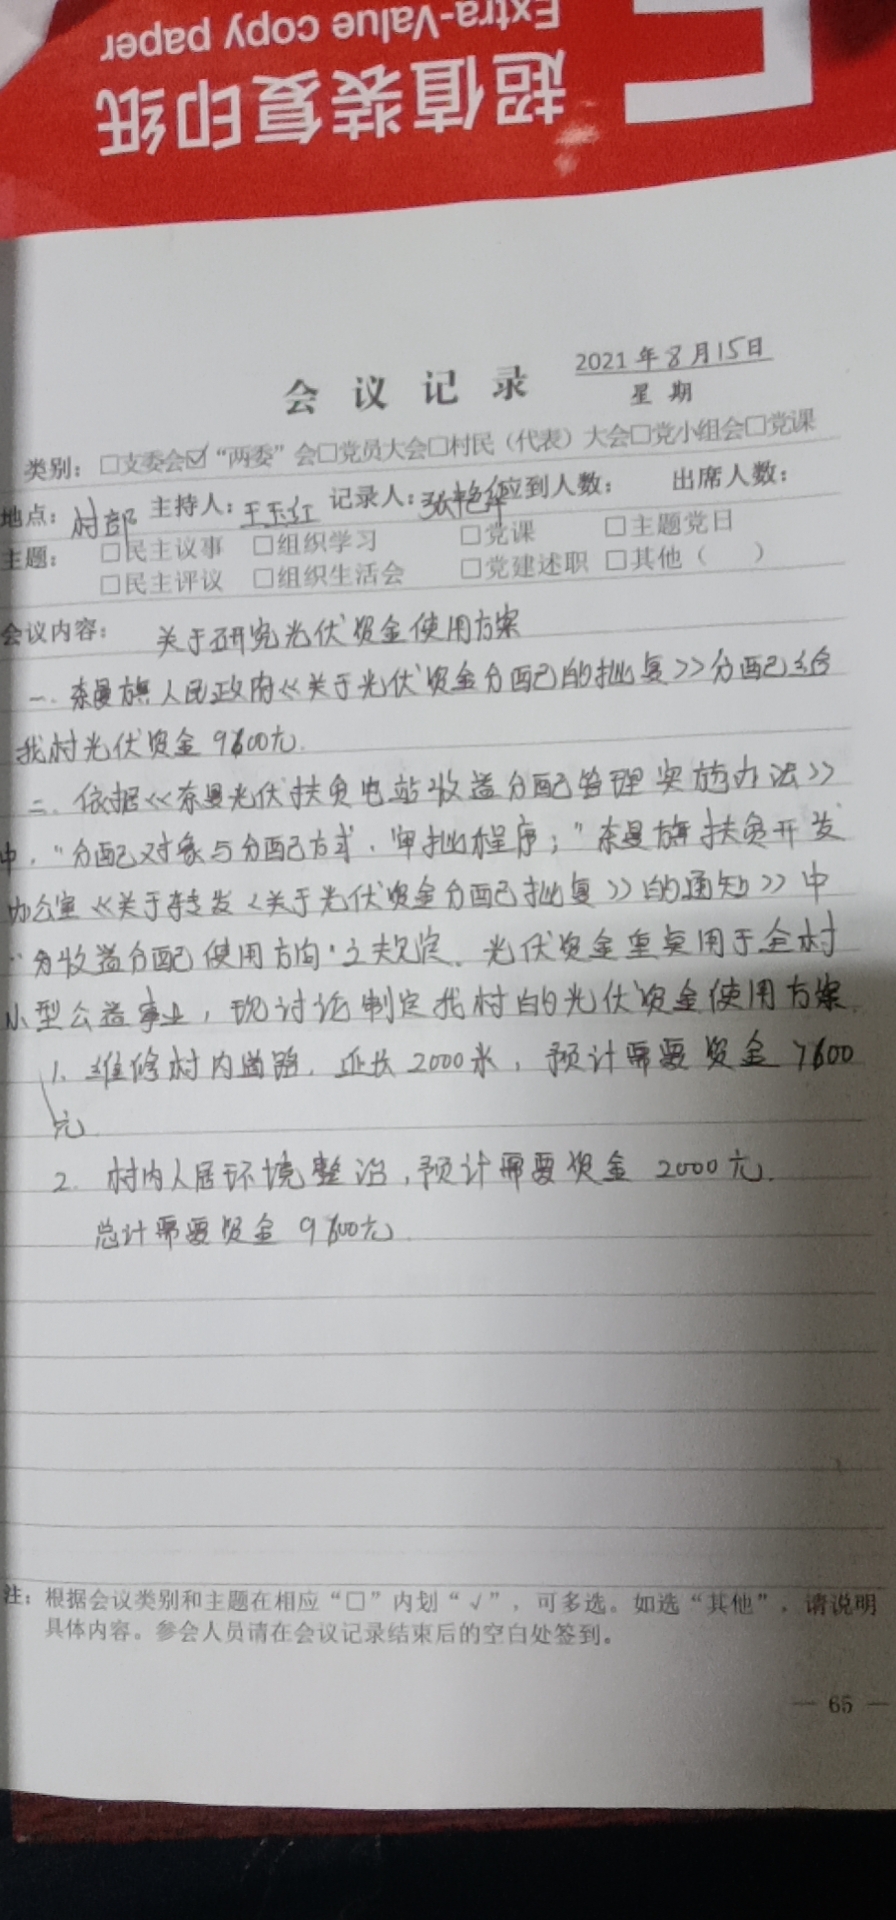 Extra-Value copy paper
超值装复印纸
会议记录
2021年8月15日
星期
类别：□支委会☑“两委”会□党员大会□村民（代表）大会□党小组会□党课
地点：村部 主持人：王玉红 记录人：张艳华 应到人数： 出席人数：
主题： □民主议事 □组织学习 □党课 □主题党日
□民主评议 □组织生活会 □党建述职 □其他（ ）
会议内容： 关于研究光伏资金使用方案
一. 奈曼旗人民政府《关于光伏资金分配的批复》分配给
我村光伏资金9600元.
二. 依据《奈曼光伏扶贫电站收益分配管理实施办法》
中，“分配对象与分配方式、审批程序；”奈曼旗扶贫开发
办公室《关于转发〈关于光伏资金分配批复〉的通知》中
收益分配使用方向 规定. 光伏资金重点用于全村
小型公益事业，现讨论制定我村的光伏资金使用方案.
1. 维修村内道路. 延长2000米，预计需要资金7600
元.
2. 村内人居环境整治，预计需要资金2000元.
总计需要资金9600元.
注：根据会议类别和主题在相应“□”内划“√”，可多选。如选“其他”，请说明
具体内容。参会人员请在会议记录结束后的空白处签到。
— 65 —